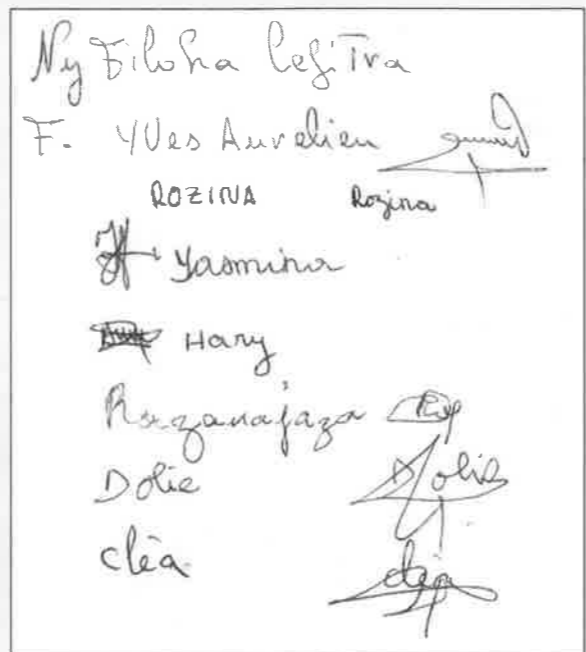 Ny Filoha lefitra
F. YVes Aurelien
ROZINA Rozina
Yasmina
Hary
Razanajaza
Dolie Dolie
clèa clèa